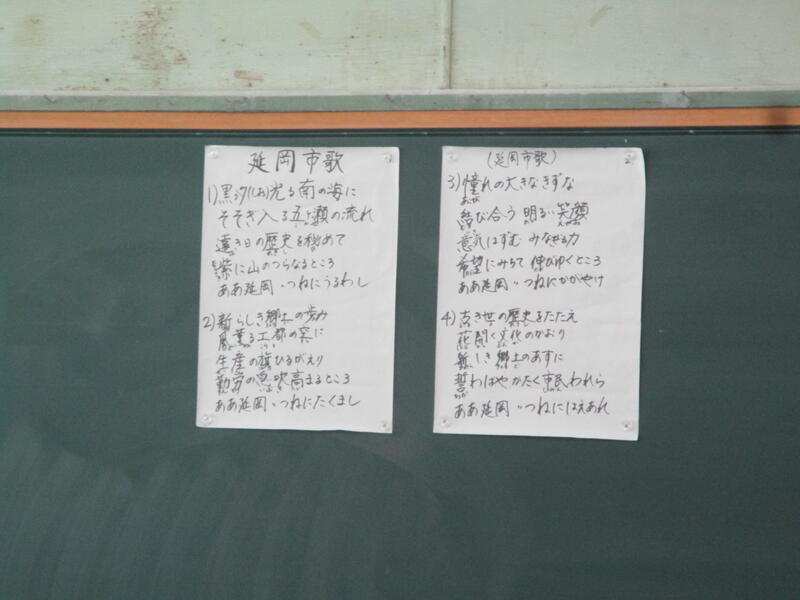 延岡市歌
1) 黒潮(しお)光る南の海に
そそぎ入る五ヶ瀬の流れ
遠き日の歴史を秘めて
紫に山のつらなるところ
ああ延岡 つねにうるわし
2) 新らしき郷土の歩み
風薫る工都の空に
生産の旗ひるがえり
勤労の息吹高まるところ
ああ延岡 つねにたくまし
(延岡市歌)
3) 憧れの大きなきずな
結び合う 明るい 笑顔
意気はずむ みなぎる力
希望にみちて 伸びゆくところ
ああ延岡 つねにかがやけ
4) 古き世の歴史をたたえ
花開く文化のかおり
新しき郷土のあすに
誓わばやかたく市民われら
ああ延岡 つねにはえあれ